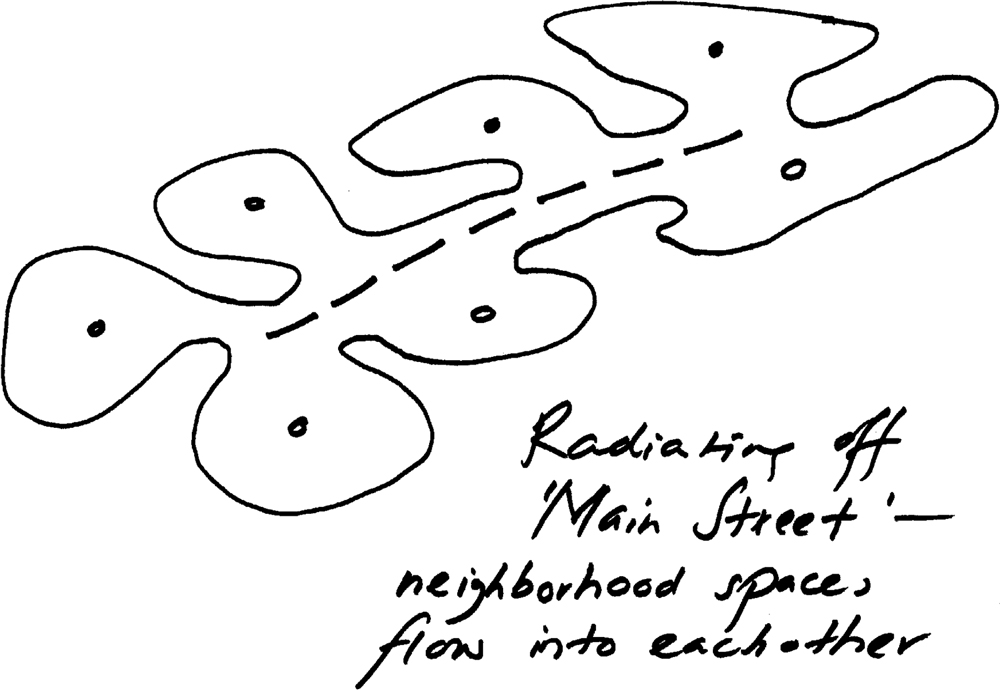 Radiating off
'Main Street' —
neighborhood spaces
flow into eachother